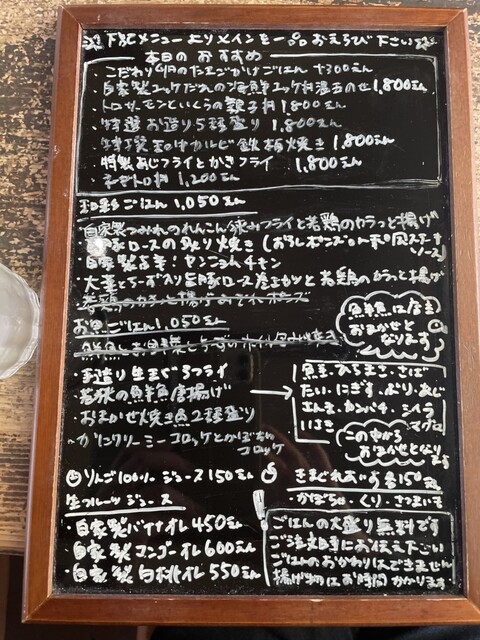 下記メニューよりメインを一品おえらび下さい
本日のおすすめ
こだわり卵のたまごかけごはん +300えん
・自家製ユッケだれの海鮮ユッケ丼温玉のせ 1,800えん
・トロサーモンといくらの親子丼 1,800えん
・特選お造り5種盛り 1,800えん
・特撰和牛カルビ鉄板焼き 1,800えん
・特製あじフライとかきフライ 1,800えん
・ねぎトロ丼 1,200えん
和彩ごはん 1,050えん
自家製つみれのれんこん挟みフライと若鶏のカラっと揚げ
豚ロースの炙り焼き (おろしポンズor和風ステーキソース)
自家製旨辛!ヤンニョムチキン
大葉とチーズ入り豚ロース巻きカツと若鶏のカラっと揚げ
お魚ごはん 1,050えん
鮮魚は店主
おまかせと
なります
手造り生まぐろフライ
若狭の鮮魚唐揚げ
・おまかせ焼き魚2種盛り
・カニクリーミーコロッケとかぼちゃコロッケ
鮮魚・ひらまさ・さば
たい・にぎす・ぶり・あじ
さんま・カンパチ・シイラ
いさき マグロ
この中から
おまかせとなります
りんご100%ジュース 150えん
生フルーツジュース
・自家製バナナオレ 450えん
・自家製マンゴーオレ 600えん
・自家製白桃オレ 550えん
きまぐれあいす 各150えん
・かぼちゃ・くり・さつまいも
ごはんの大盛り無料です
ご注文時にお伝え下さい
ごはんのおかわりはできません
揚げ物はお時間かかります